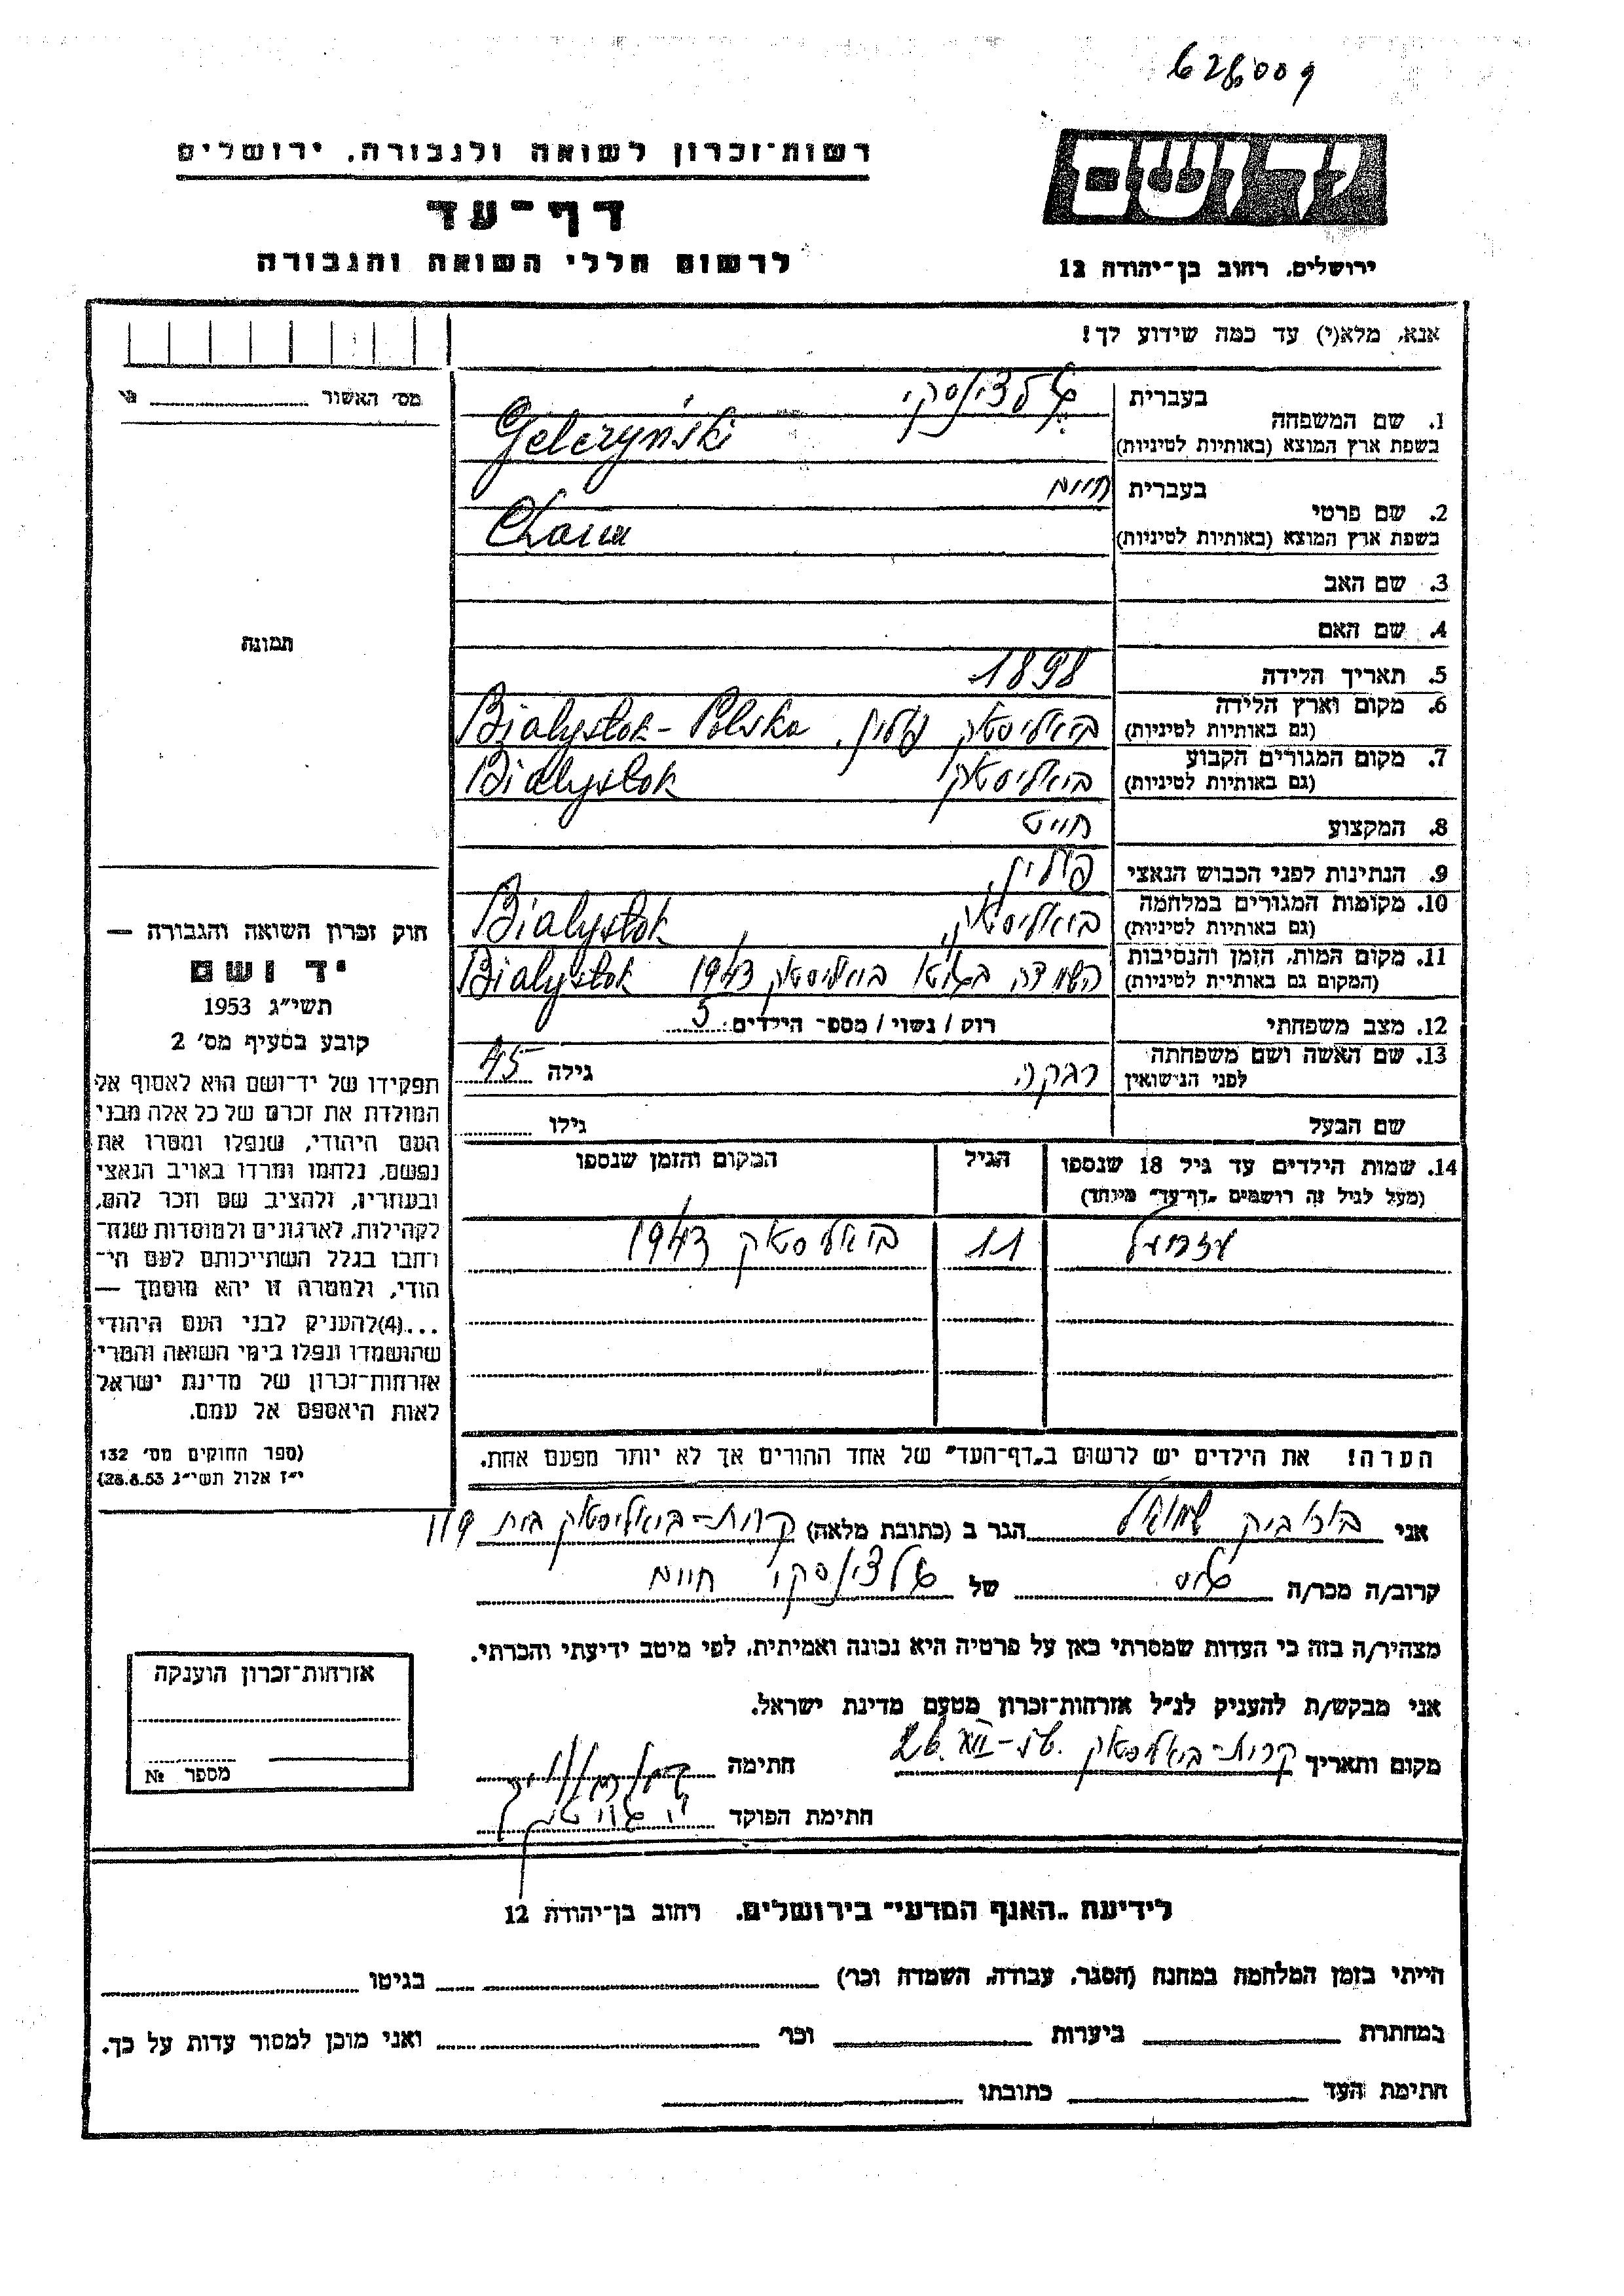 628009
רשות־זכרון לשואה ולגבורה, ירושלים
דף־עד
לרשום חללי השואה והגבורה
יד ושם
ירושלים, רחוב בן־יהודה 12
אנא, מלא(י) עד כמה שידוע לך!
מס׳ האשור
1. שם המשפחה
בעברית גלצ׳ינסקי
בשפת ארץ המוצא (באותיות לטיניות) Gelczyński
2. שם פרטי
בעברית חיים
בשפת ארץ המוצא (באותיות לטיניות) Chaim
3. שם האב
4. שם האם
תמונה
5. תאריך הלידה 1898
6. מקום וארץ הלידה
(גם באותיות לטיניות) ביאליסטוק פולין. Bialystok - Polska
7. מקום המגורים הקבוע
(גם באותיות לטיניות) ביאליסטוק Bialystok
8. המקצוע חייט
9. הנתינות לפני הכבוש הנאצי פולין
10. מקומות המגורים במלחמה
(גם באותיות לטיניות) ביאליסטוק Bialystok
11. מקום המות, הזמן והנסיבות
(המקום גם באותיות לטיניות) השמדה בגטו ביאליסטוק 1943 Bialystok
12. מצב משפחתי רווק / נשוי / מספר הילדים: 3
13. שם האשה ושם משפחתה
לפני הנישואין רבקה גילה 45
שם הבעל גילו
14. שמות הילדים עד גיל 18 שנספו הגיל המקום והזמן שנספו
(מעל לגיל זה רושמים „דף־עד״ מיוחד)
עזריאל 11 ביאליסטוק 1943
חוק זכרון השואה והגבורה —
יד ושם
תשי״ג 1953
קובע בסעיף מס׳ 2
תפקידו של יד־ושם הוא לאסוף אל
המולדת את זכרם של כל אלה מבני
העם היהודי, שנפלו ומסרו את
נפשם, נלחמו ומרדו באויב הנאצי
ובעוזריו, ולהציב שם וזכר להם,
לקהילות, לארגונים ולמוסדות שנח־
רחבו בגלל השתייכותם לעם הי־
הודי, ולמטרה זו יהא מוסמך —
...(4)להעניק לבני העם היהודי
שהושמדו ונפלו בימי השואה והמרי
אזרחות־זכרון של מדינת ישראל
לאות היאספם אל עמם.
(ספר החוקים מס׳ 132
י״ז אלול תשי״ג 28.8.53)
הערה! את הילדים יש לרשום ב„דף־העד״ של אחד ההורים אך לא יותר מפעם אחת.
אני שמואל הגר ב (כתובת מלאה) קרית-ביאליסטוק בית
קרוב/ה מכר/ה גיס של גלצ׳ינסקי חיים
מצהיר/ה בזה כי העדות שמסרתי כאן על פרטיה היא נכונה ואמיתית, לפי מיטב ידיעתי והכרתי.
אני מבקש/ת להעניק לנ״ל אזרחות־זכרון מטעם מדינת ישראל.
מקום ותאריך קרית-ביאליסטוק חתימה
חתימת הפוקד
אזרחות־זכרון הוענקה
מספר №
לידיעת „האגף המדעי״ בירושלים. רחוב בן־יהודה 12
הייתי בזמן המלחמה במחנה (הסגר, עבודה, השמדה וכו׳) בגיטו
במחתרת ביערות וכו׳ ואני מוכן למסור עדות על כך.
חתימת העד כתובתו